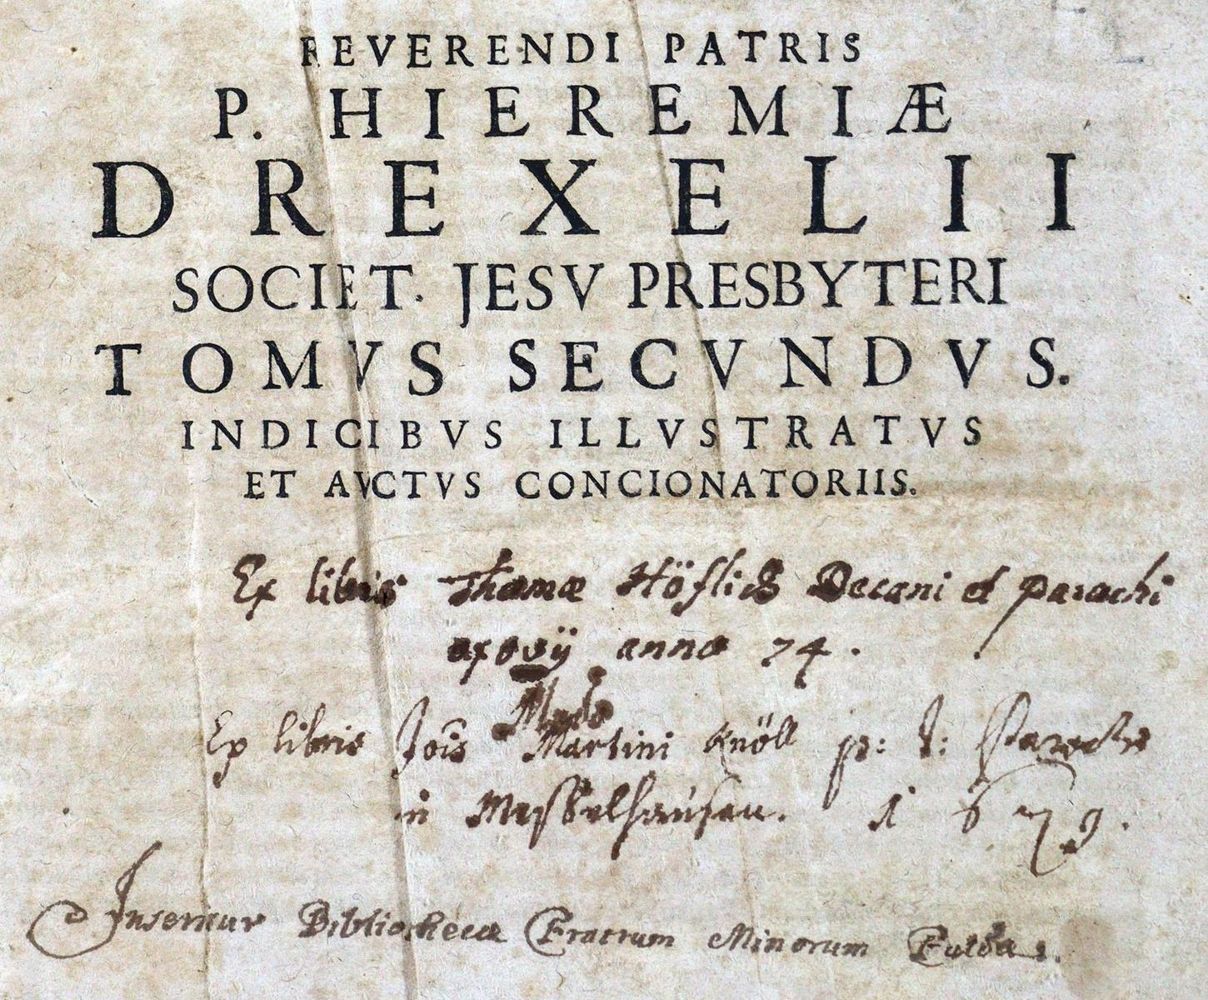 REVERENDI PATRIS
P. HIEREMIÆ
DREXELII
SOCIET. JESV PRESBYTERI
TOMVS SECVNDVS.
INDICIBVS ILLVSTRATVS
ET AVCTVS CONCIONATORIIS.
Ex libris Thomæ Höflich Decani et parochi
anno 74.
Modo
Ex libris Jois Martini Knöll p: t: Parochi
in Messelhausen. 1679.
Inserviur Bibliothecæ Fratrum Minorum Fuldæ.